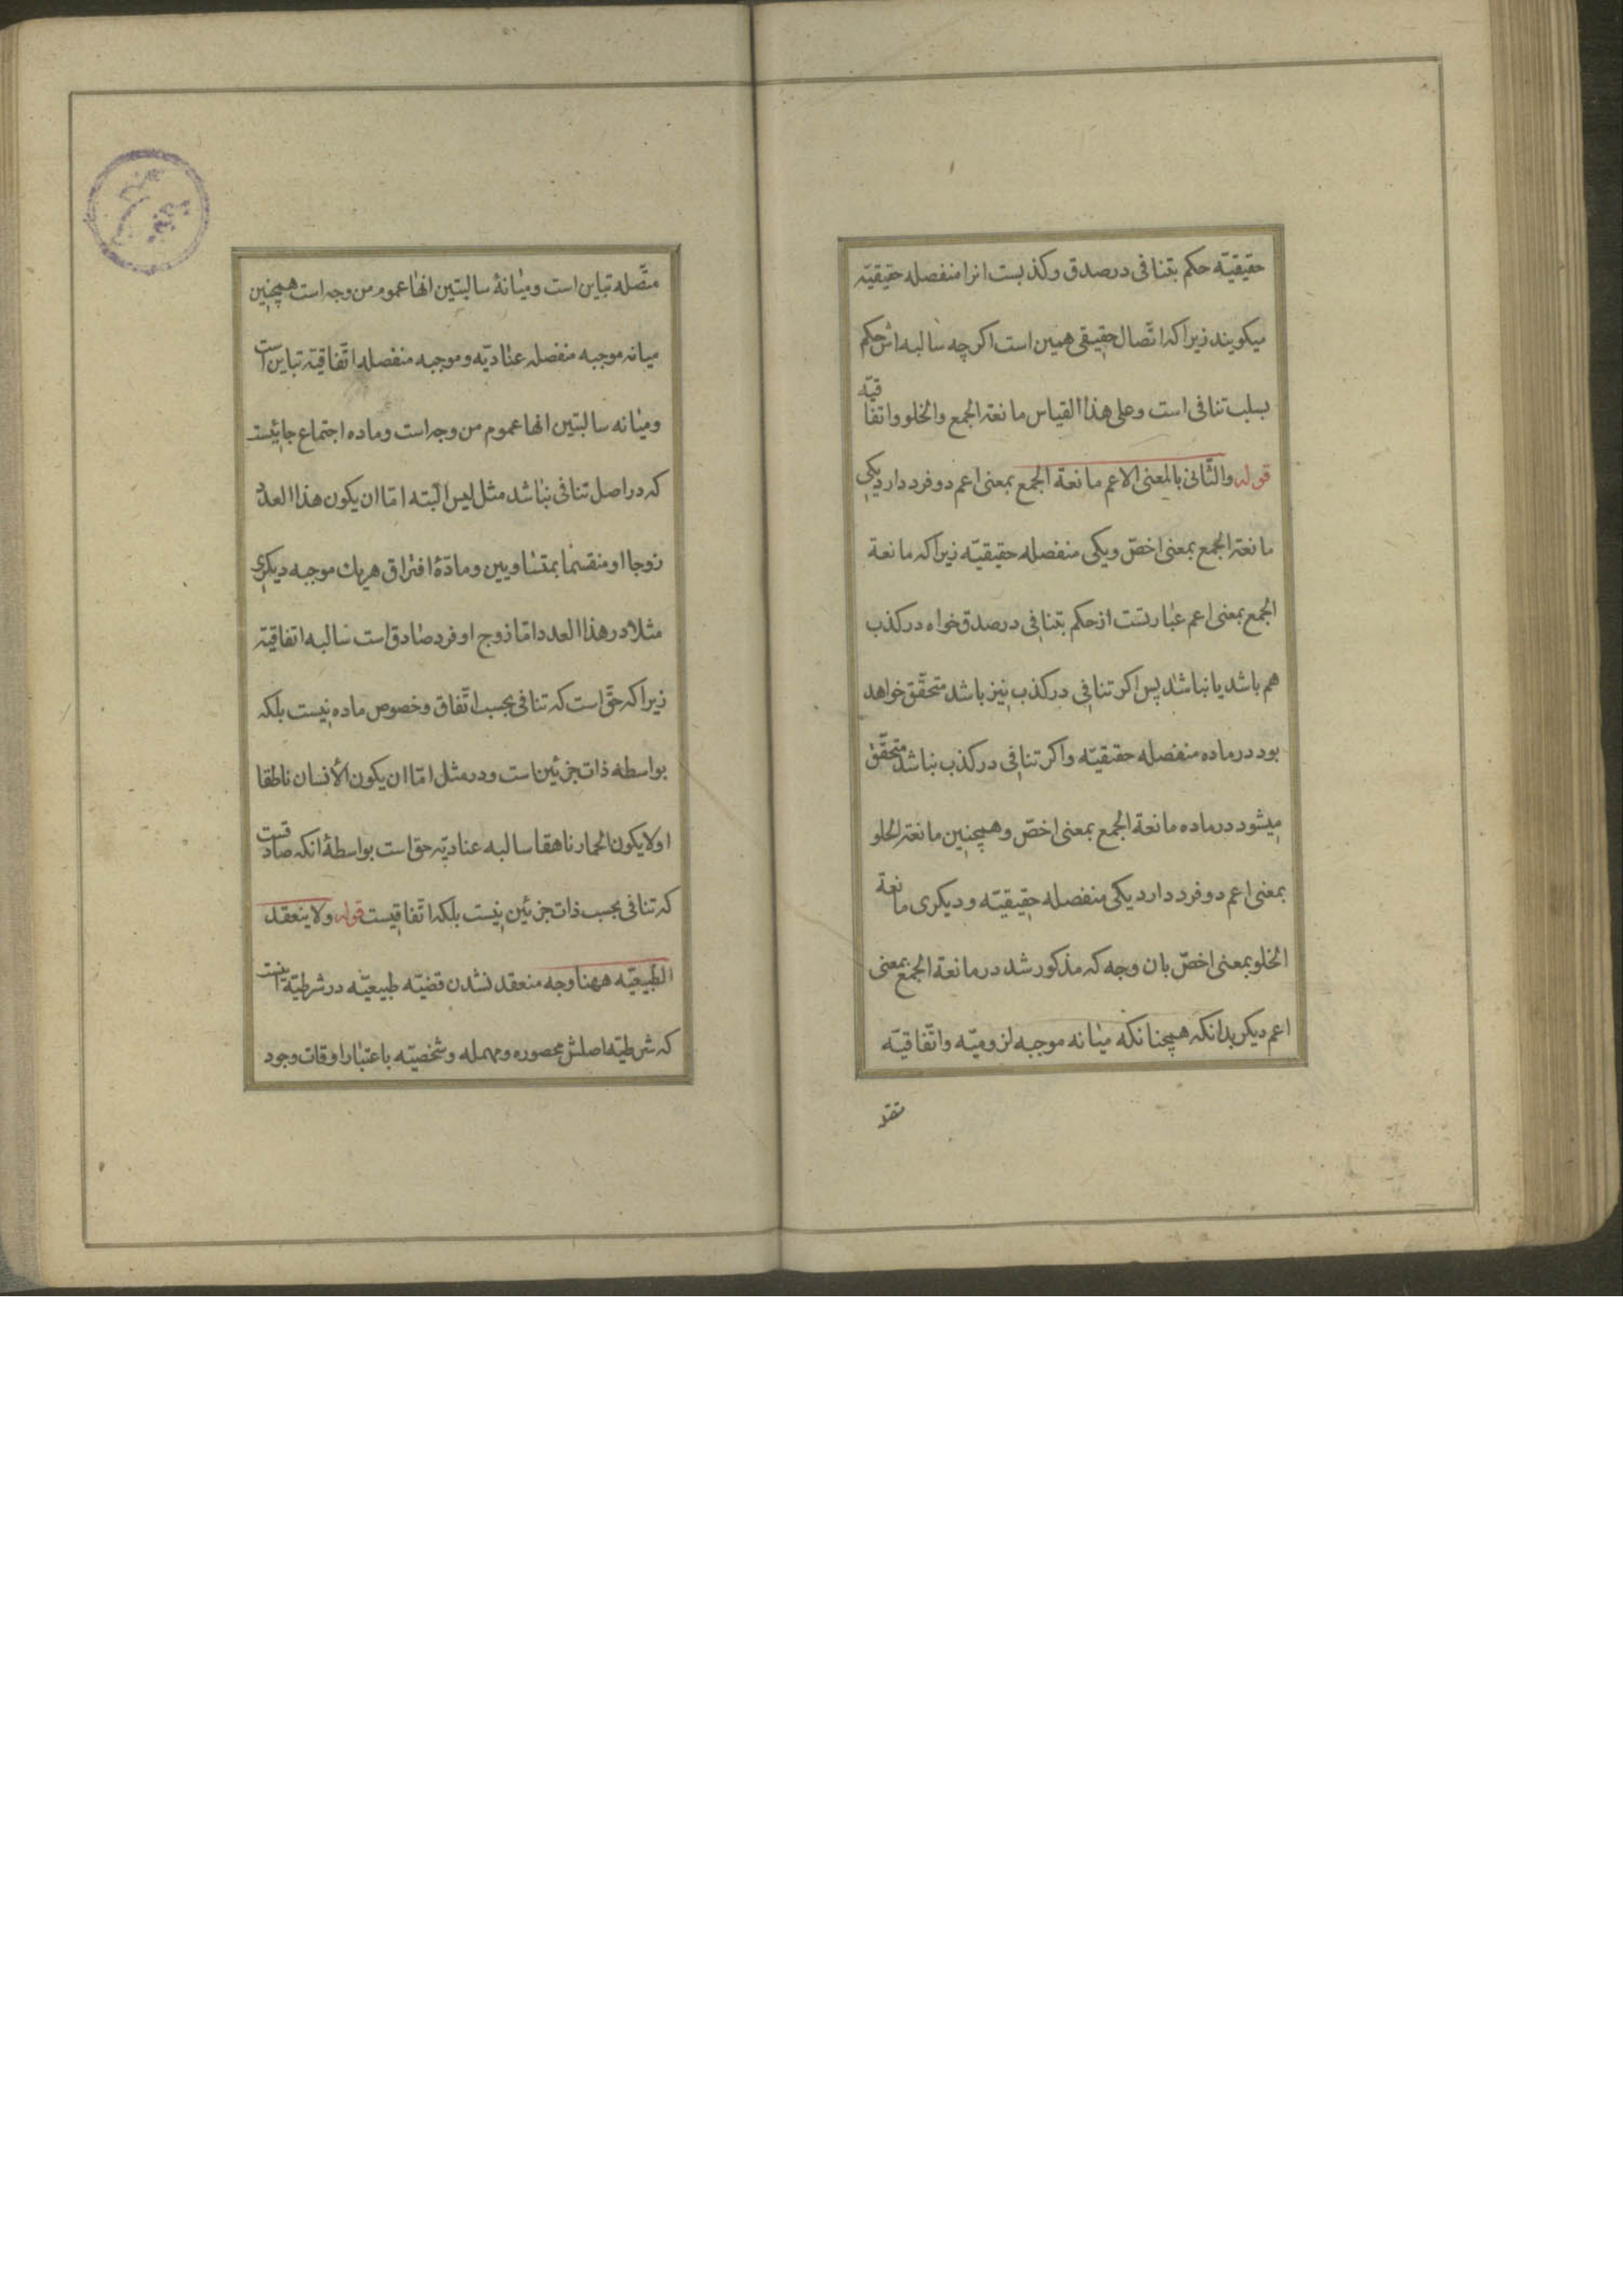 حقیقیّه حکم بتنافی در صدق و کذبست انرا منفصله حقیقیّه
میکویند زیرا که اتّصال حقیقی همین است اکر چه سالبه اش حکم
بسلب تنافی است و علی هذا القیاس مانعة الجمع والخلو و اتفاقیّه
قوله والثّانی بالمعنی الاعم مانعة الجمع بمعنی اعم دو فرد دارد یکی
مانعة الجمع بمعنی اخصّ و یکی منفصله حقیقیّه زیرا که مانعة
الجمع بمعنی اعم عبارتست از حکم بتنافی در صدق خواه در کذب
هم باشد یا نباشد پس اکر تنافی در کذب نیز باشد متحقّق خواهد
بود در ماده منفصله حقیقیّه و اکر تنافی در کذب نباشد متحقّق
میشود در ماده مانعة الجمع بمعنی اخصّ و همچنین مانعة الخلو
بمعنی اعم دو فرد دارد یکی منفصله حقیقیّه و دیکری مانعة
الخلو بمعنی اخصّ بان وجه که مذکور شد در مانعة الجمع بمعنی
اعم دیکر بدانکه همچنانکه میانه موجبه لزومیّه و اتّفاقیّه
متّصله تباین است و میانهٔ سالبتین انها عموم من وجه است همچنین
میانه موجبه منفصله عنادیّه و موجبه منفصله اتّفاقیّه تباین است
و میانه سالبتین انها عموم من وجه است و ماده اجتماع جائیست
که در اصل تنافی نباشد مثل لیس البّته امّا ان یکون هذا العدد
زوجا او منقسما بمتساویین و مادّهٔ افتراق هریك موجبه دیکری
مثلا در هذا العدد امّا زوج او فرد صادق است سالبه اتفاقیّه
زیرا که حقّ است که تنافی بحسب اتّفاق و خصوص ماده نیست بلکه
بواسطه ذات جزئین است و در مثل امّا ان یکون الأنسان ناطقا
او لا یکون الحمار ناهقا سالبه عنادیّه حق است بواسطهٔ انکه صادقست
که تنافی بحسب ذات جزئین نیست بلکه اتّفاقیست قوله ولا ینعقد
الطّبیعیّه ههنا وجه منعقد نشدن قضیّه طبیعیّه در شرطیّة اینست
که شرطیّه اصلش محصوره و مهمله و شخصیّه باعتبار اوقات وجود